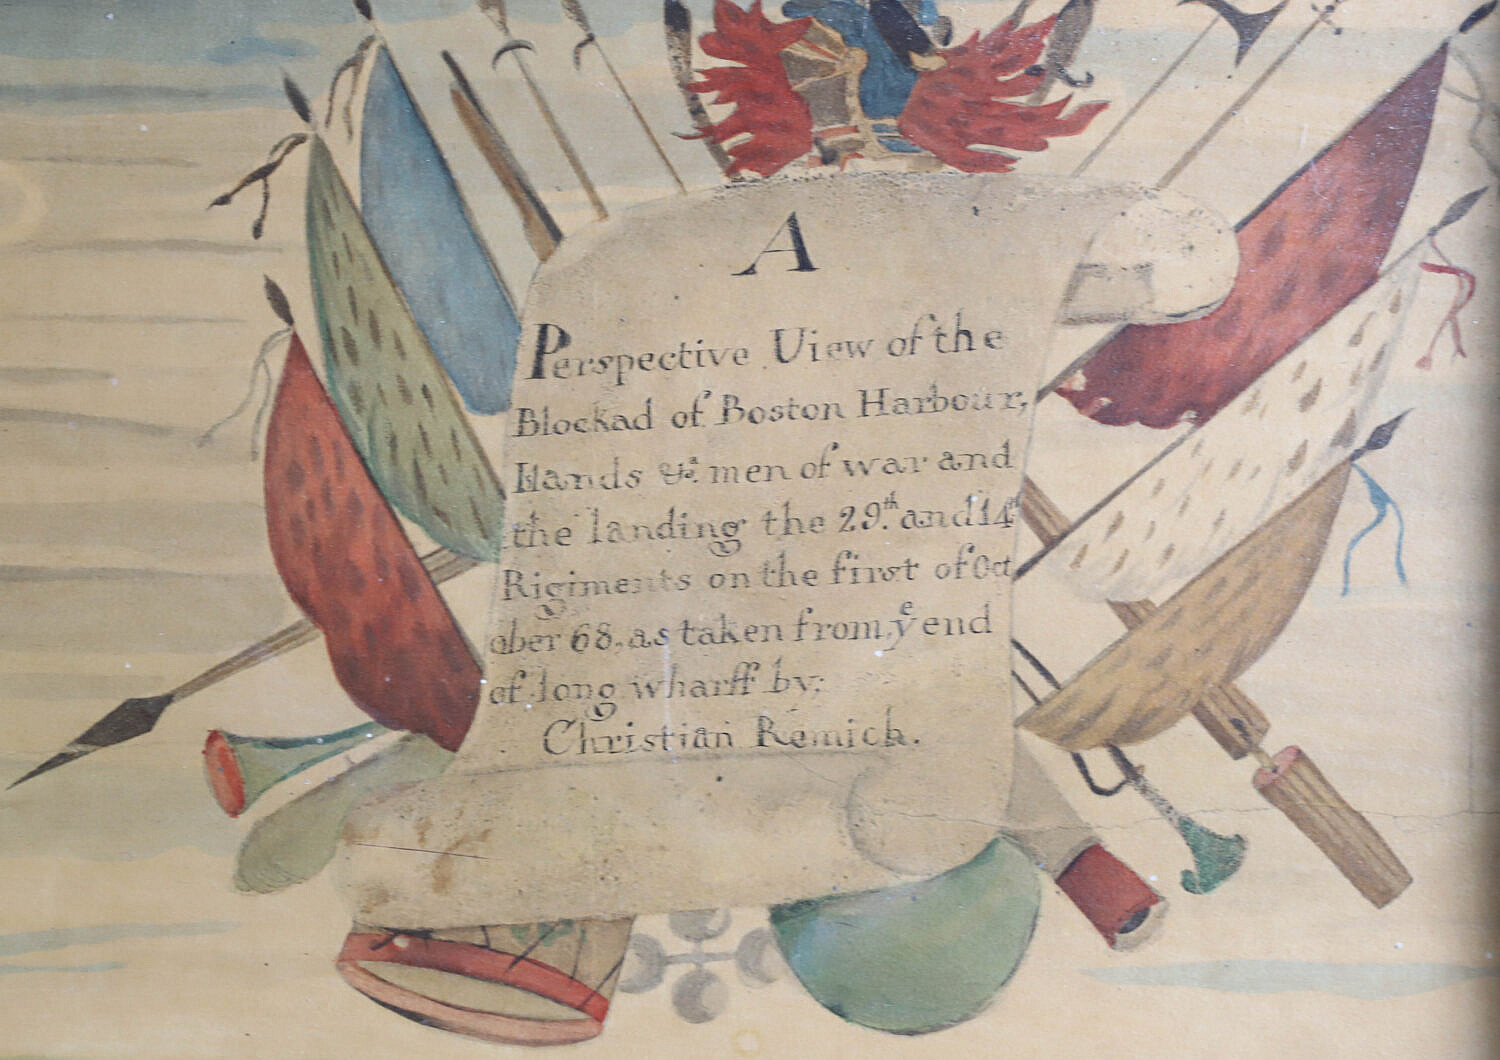 A
Perspective View of the
Blockad of Boston Harbour,
Ilands &c. men of war and
the landing the 29.th and 14th
Rigiments on the first of Oct
ober 68, as taken from ye end
of long wharff by;
Christian Remick.